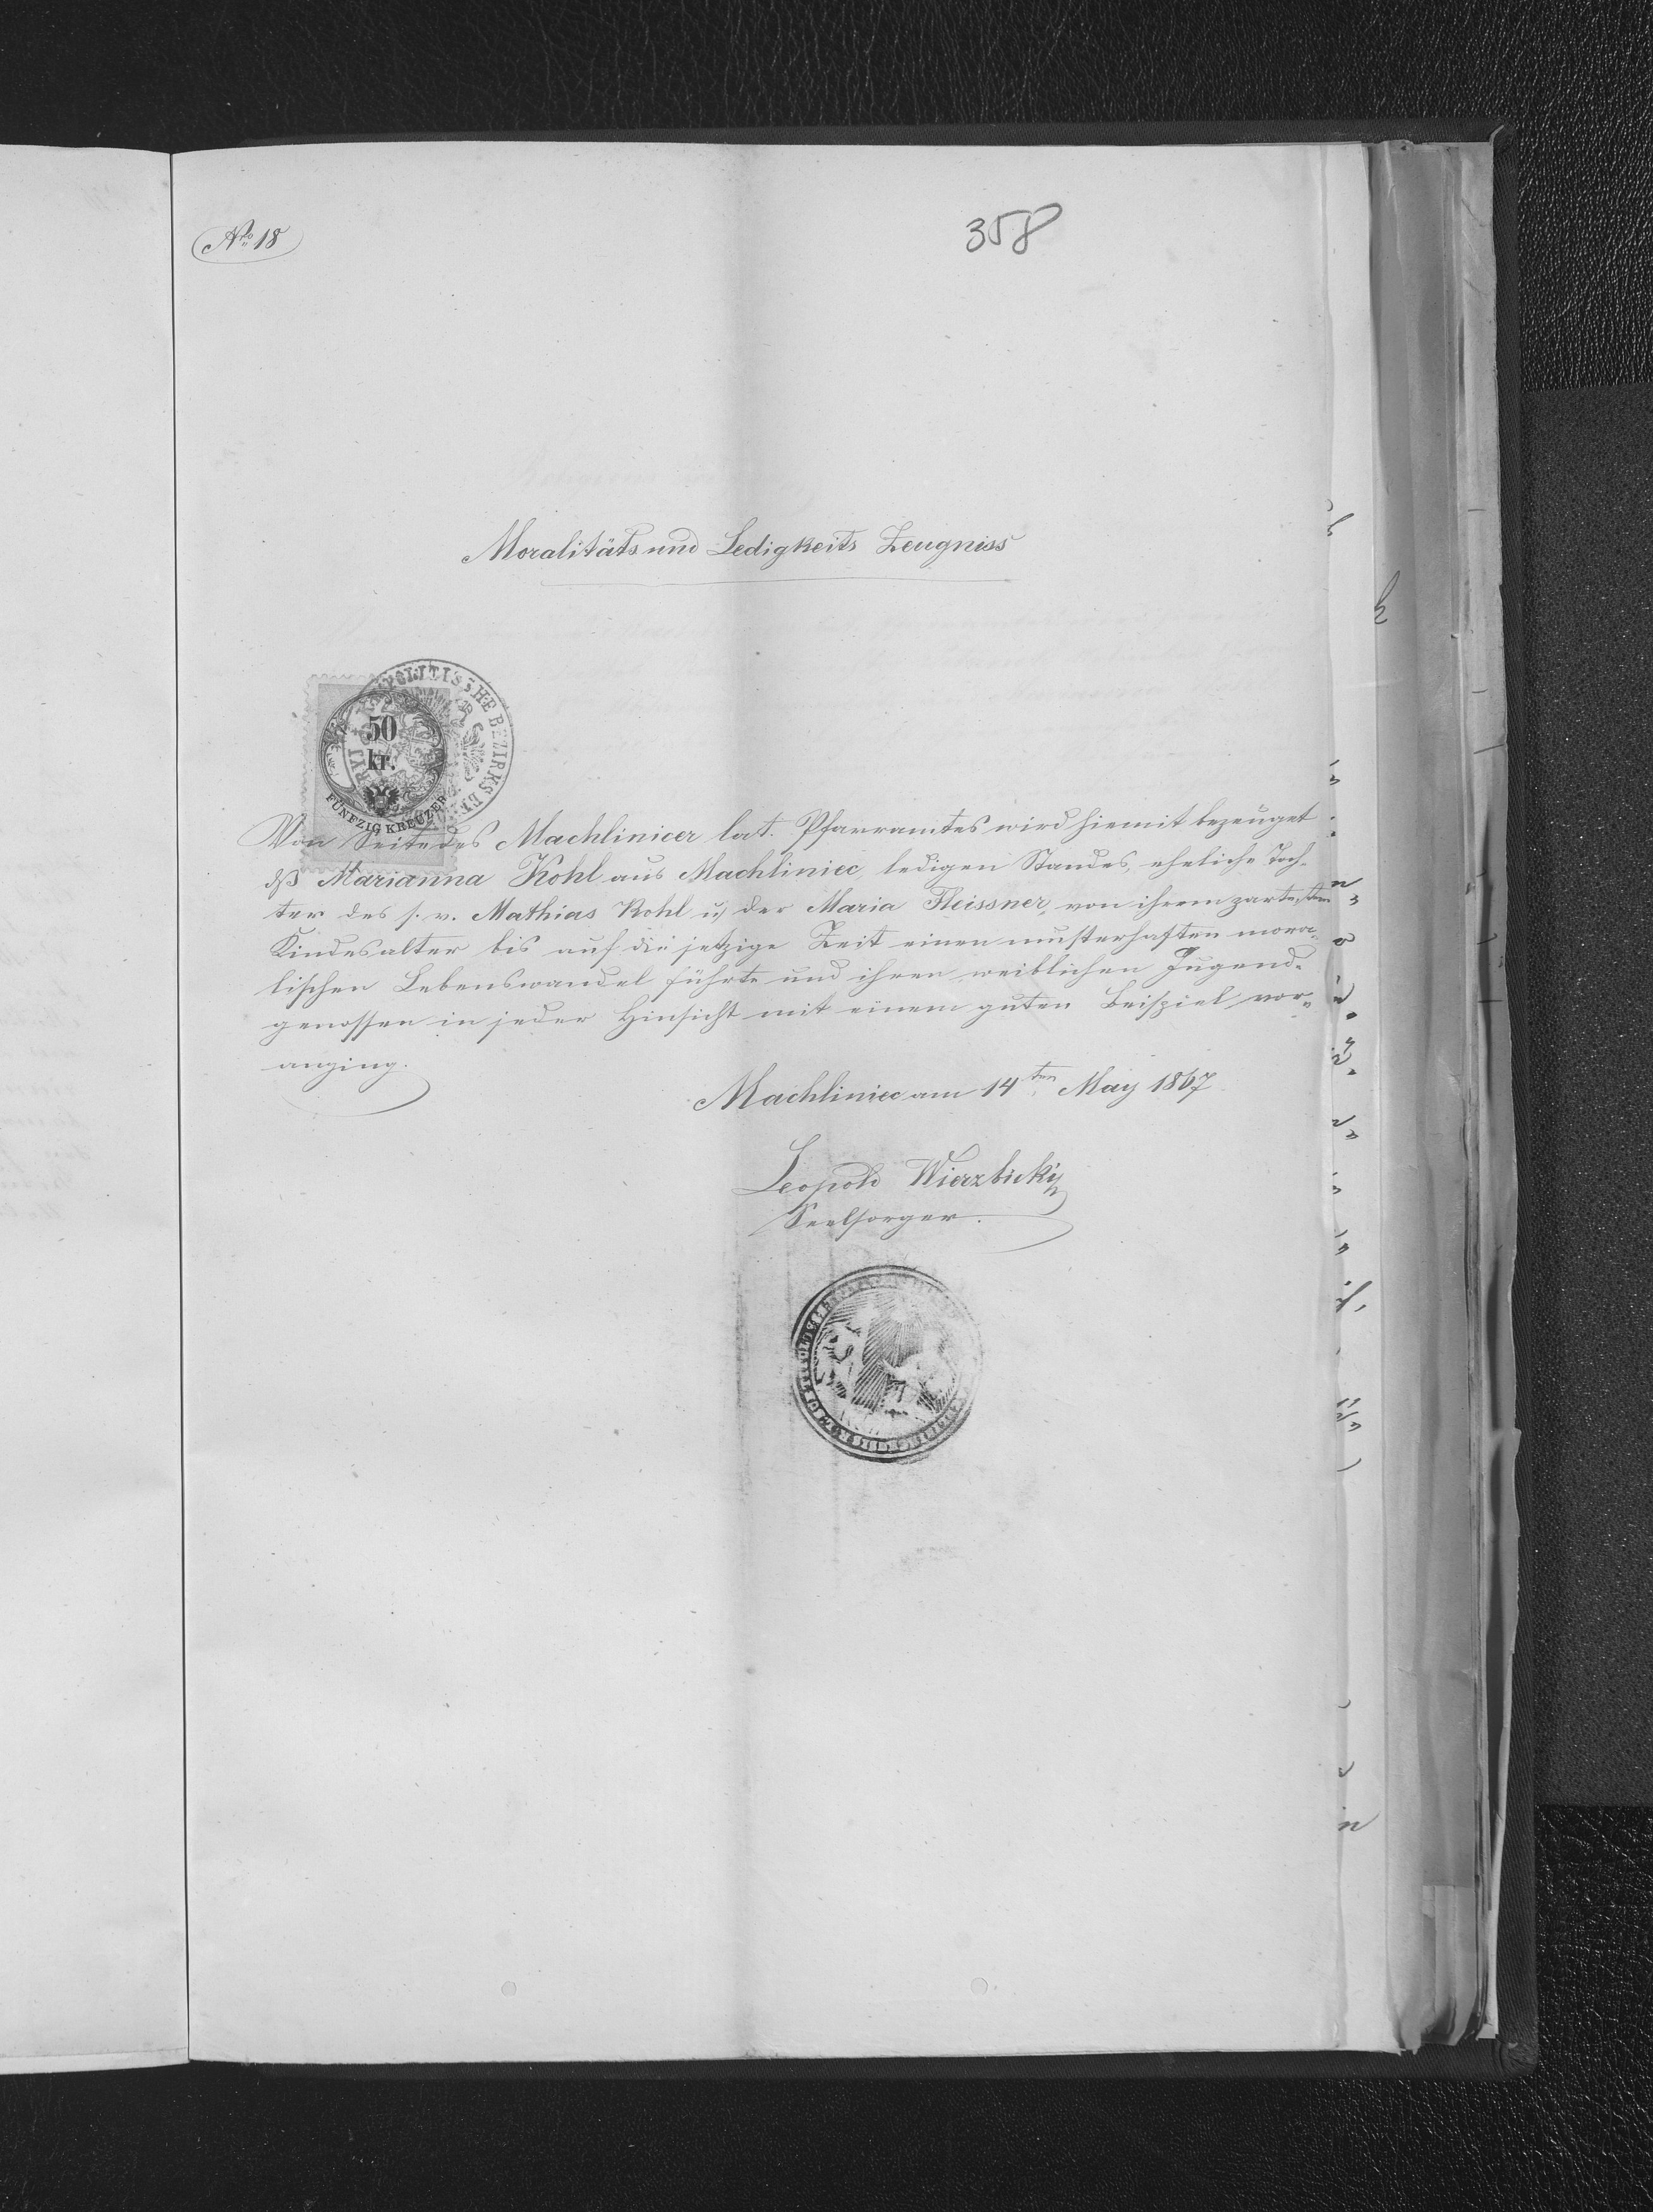 No 18
358
Moralitäts und Ledigkeits Zeugniss
POLITISCHE BEZIRKS
50
kr.
FÜNFZIG KREUZER
Von Seite des Machlinicer lat. Pfarramtes wird hiemit bezeuget
dß Marianna Kohl aus Machliniec, ledigen Standes, eheliche Toch-
ter des s. v. Mathias Kohl u der Maria Fleissner, von ihrem zartesten
Kindesalter bis auf die jetzige Zeit einen musterhaften mora-
lischen Lebenswandel führte und ihren weiblichen Jugend-
genossen in jeder Hinsicht mit einem guten Beispiel vor-
anging.
Machliniec am 14ten May 1867
Leopold Wierzbicki
Seelsorger.